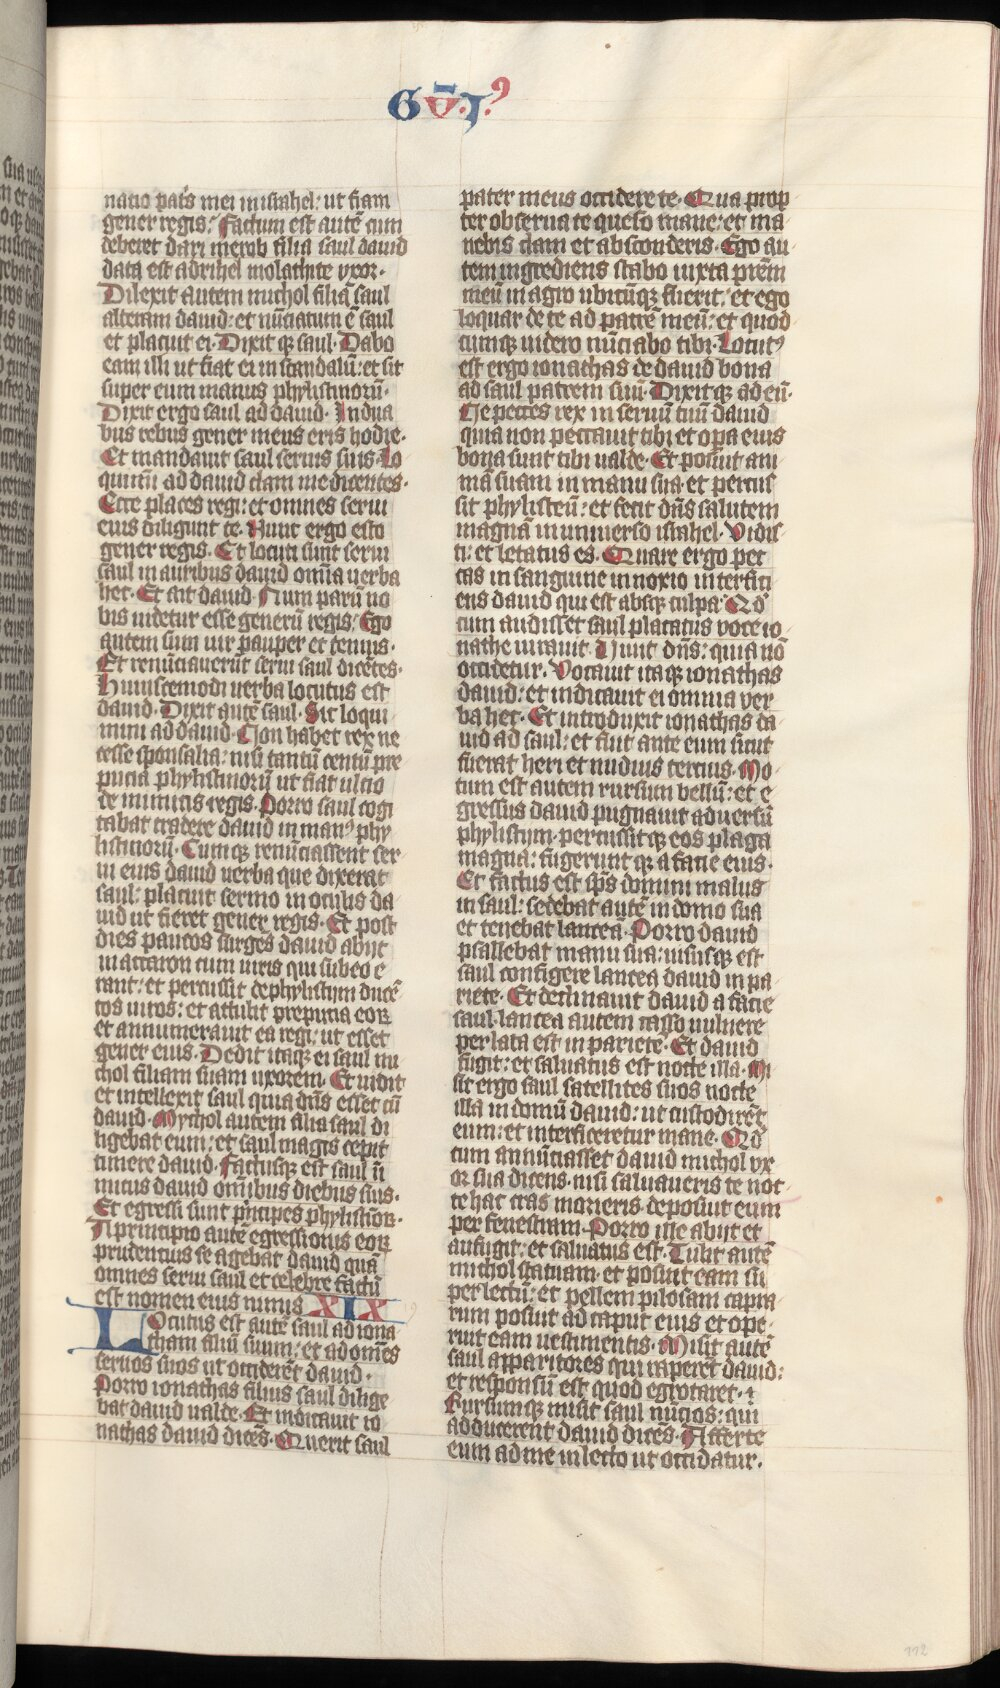 Gum·I⁹
natio pat̄s mei in israhel: ut fiam
gener regis. Factum est autē cum
deberet dari merob filia saul dauid
data est adrihel molathite vxor·
Dilexit autem michol filiā saul
alteram dauid: et nūciatum ē saul
et placuit ei. Dixit qꝫ saul. Dabo
eam illi ut fiat ei in scandalū: et sit
super eum manus phylistinorū·
Dixit ergo saul ad dauid. In dua
bus rebus gener meus eris hodie·
Et mandauit saul seruis suis. Lo
quimini ad dauid clam me dicentes·
Ecce places regi: et omnes serui
eius diligunt te. Nunc ergo esto
gener regis. Et locuti sunt serui
saul in auribus dauid omīa uerba
hec. Et ait dauid. Num parū uo
bis uidetur esse generū regis. Ego
autem sum uir pauper et tenuis·
Et renūciauerūt serui saul dicētes·
Huiuscemodi uerba locutus est
dauid. Dixit autē saul. Sic loqui
mini ad dauid. Non habet rex ne
cesse sponsalia: nisi tantū centū pre
pucia phylistinorū ut fiat ultio
de inimicis regis. Porro saul cogi
tabat tradere dauid in man⁹ phy
listinorū. Cumqꝫ renūciassent ser
ui eius dauid uerba que dixerat
saul: placuit sermo in oculis da
uid ut fieret gener regis. Et post
dies paucos surges dauid abijt
in accaron cum uiris qui sub eo e
rant: et percussit de phylistijm ducē
tos uiros: et attulit preputia eoꝝ
et annumerauit ea regi: ut esset
gener eius. Dedit itaqꝫ ei saul mi
chol filiam suam uxorem. Et uidit
et intellexit saul quia dn̄s esset cū
dauid. Mychol autem filia saul di
ligebat eum: et saul magis cepit
timere dauid. Factusqꝫ est saul ī
imicus dauid omībus diebus suis·
Et egressi sunt p̄ncipes phylistioꝝ·
A principio autē egressionis eoꝝ
prudentius se agebat dauid quā
omnes serui saul et celebre factū
est nomen eius nimis XIX
Locutus est autē saul ad iona
tham filiū suum: et ad omēs
seruos suos ut occiderēt dauid·
Porro ionathas filius saul dilige
bat dauid ualde. Et indicauit io
nathas dauid dicēs. Querit saul
pater meus occidere te. Qua prop
ter obserua te queso mane: et ma
nebis clam et absconderis. Ego au
tem ingrediens stabo iuxta prēm
meū in agro ubicūqꝫ fuerit. et ego
loquar de te ad patrē meū: et quod
cumqꝫ uidero nūciabo tibi. Locut⁹
est ergo ionathas de dauid bona
ad saul patrem suū. Dixitqꝫ ad eū·
Ne pecces rex in seruū tuū dauid
quia non peccauit tibi et opa eius
bona sunt tibi ualde. Et posuit ani
mā suam in manu sua. et percus
sit phylisteū: et fecit dn̄s salutem
magnā in uniuerso israhel. Vidis
ti: et letatus es. Quare ergo pec
cas in sanguine innoxio interfici
ens dauid qui est absqꝫ culpa. Qd̄
cum audisset saul placatus uoce io
nathe iurauit. Uiuit dn̄s: quia nō
occidetur. Vocauit itaqꝫ ionathas
dauid: et indicauit ei omnia ver
ba hec. Et introduxit ionathas da
uid ad saul: et fuit ante eum sicut
fuerat heri et nudius tercius. Mo
tum est autem rursum bellū: et e
gressus dauid pugnauit aduersū
phylistijm. percussitqꝫ eos plaga
magna: fugeruntqꝫ a facie eius·
Et factus est sp̄s domini malus
in saul: sedebat autē in domo sua
et tenebat lanceā. Porro dauid
psallebat manu sua: nisusqꝫ est
saul configere lancea dauid in pa
riete. Et declinauit dauid a facie
saul. lancea autem casso uulnere
perlata est in pariete. Et dauid
fugit: et saluatus est nocte illa. Mi
sit ergo saul satellites suos nocte
illa in domū dauid: ut custodirēt
eum: et interficeretur mane. Qd̄
cum annūciasset dauid michol vx
or sua dicens. nisi saluaueris te noc
te hac cras morieris. deposuit eum
per fenestram. Porro ille abijt et
aufugit: et saluatus est. Tulit autē
michol statuam. et posuit eam su
per lectū: et pellem pilosam capra
rum posuit ad caput eius et ope
ruit eam uestimentis. Misit autē
saul apparitores qui raperēt dauid:
et responsū est quod egrotaret·
Rursumqꝫ misit saul nūcios: qui
adducerent dauid dices. Afferte
eum ad me in lecto ut occidatur.
112